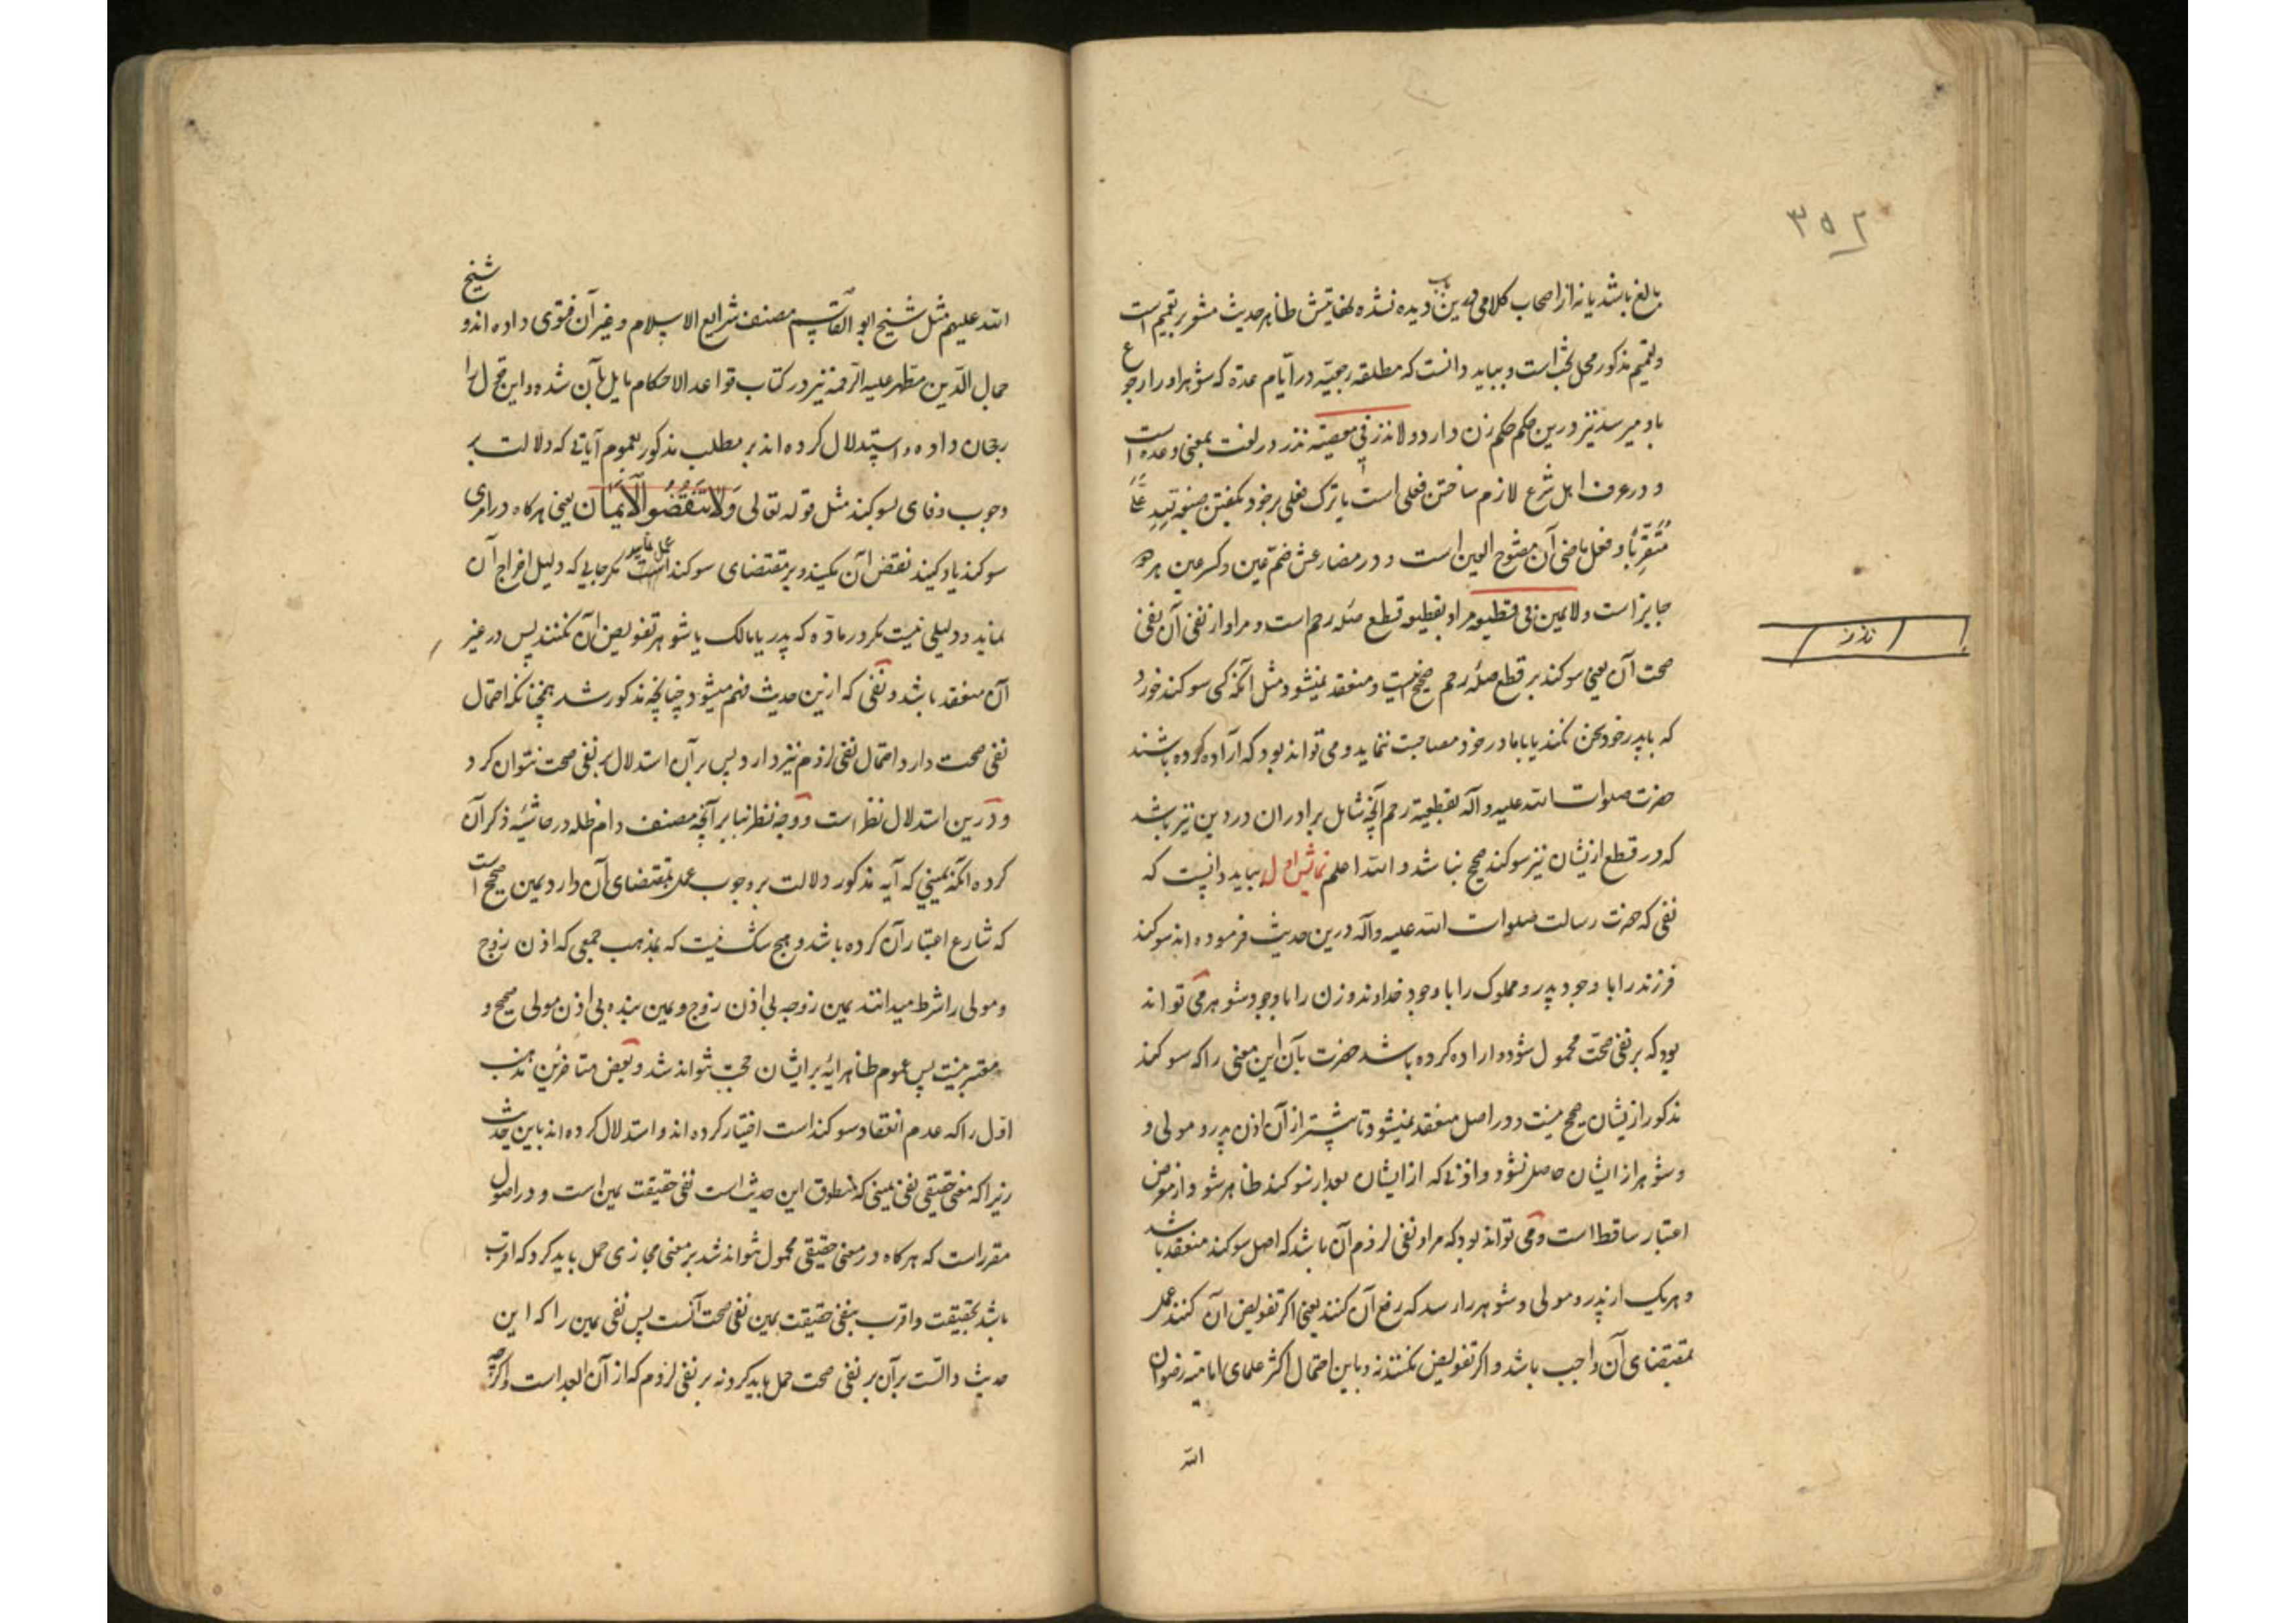 ۳۵۲
بالغ باشد یا نه از اصحاب کلامی درین باب دیده نشده نهایتش ظاهر حدیث مشعر بتعمیم است
و تعمیم مذکور محل بحث است و بباید دانست که مطلقه رجعیّه در ایّام عدّه که شوهر او را رجوع
باو میرسد نیز درین حکم حکم زن دارد و لا نذر فی معصیة نذر در لغت بمعنی وعده است
و در عرف اهل شرع لازم ساختن فعلی است یا ترک فعلی بر خود بگفتن صیغه
متقرّباً و فعل ماضی آن مفتوح العین است و در مضارعش ضمّ عین و کسر عین هر دو
جایز است و لا یمین فی قطیعه مراد بقطیعه قطع صله رحم است و مراد از نفی آن نفی
نذر
صحت آن یعنی سوکند بر قطع صله رحم صحیح نیست و منعقد نمیشود مثل آنکه کسی سوکند خورد
که با پدر خود سخن نکند یا با مادر خود مصاحبت ننماید و می تواند بود که اراده کرده باشند
حضرت صلوات الله علیه و آله بقطیعة رحم آنچه شامل برادران در دین نیز باشد
که در قطع ازیشان نیز سوکند صحیح نباشد و الله اعلم نمایش اول بباید دانست که
نفی که حضرت رسالت صلوات الله علیه و آله درین حدیث فرموده اند سوکند
فرزند را با وجود پدر و مملوک را با وجود خداوند و زن را با وجود شوهر می تواند
بود که بر نفی صحّت محمول شود و اراده کرده باشد حضرت بآن این معنی را که سوکند
مذکور ازیشان صحیح نیست و در اصل منعقد نمیشود تا پیشتر از آن اذن پدر و مولی و
و شوهر از ایشان حاصل نشود و اذنی که از ایشان بعد از سوکند ظاهر شود از معرض
اعتبار ساقط است و می تواند بود که مراد نفی لزوم آن باشد که اصل سوکند منعقد باشد
و هر یک از پدر و مولی و شوهر را رسد که رفع آن کنند یعنی اکر تفویض آن کنند عمل
بمقتضای آن واجب باشد و اکر تفویض نکنند نه و باین احتمال اکثر علمای امامیّه رضوان
الله
الله علیهم مثل شیخ ابو القاسم مصنف شرایع الاسلام و غیر آن فتوی داده اند و شیخ
جمال الدّین مطهر علیه الرحمة نیز در کتاب قواعد الاحکام مایل بآن شده و این قول را
رجحان داده و استدلال کرده اند بر مطلب مذکور بعموم آیاتی که دلالت بر
وجوب وفای بسوکند مثل قوله تعالی وَلَا تَنقُضُوا الْأَیْمَانَ یعنی هرکاه در امری
سوکند یاد کنید نقض آن نکنید و بر مقتضای سوکند عمل نمایید مکر جایی که دلیل اخراج آن
نماید و دلیلی نیست مکر در ماده که پدر یا مالک یا شوهر تفویض آن نکنند پس در غیر
آن منعقد باشد و نفی که ازین حدیث فهم میشود چنانچه مذکور شد همچنانکه احتمال
نفی صحت دارد احتمال نفی لزوم نیز دارد پس بر آن استدلال بر نفی صحت نتوان کرد
و درین استدلال نظر است و وجه نظر بنا بر آنچه مصنف دام ظله در حاشیه ذکر آن
کرده آنکه یمینی که آیه مذکور دلالت بر وجوب عمل بمقتضای آن دارد یمین صحیح است
که شارع اعتبار آن کرده باشد و هیچ شک نیست که بمذهب جمعی که اذن زوج
و مولی را شرط میدانند یمین زوجه بی اذن زوج و یمین بنده بی اذن مولی صحیح و
معتبر نیست پس عموم ظاهر آیه بر ایشان حجّت نتواند شد و بعض متأخرین مذهب
اول را که عدم انعقاد سوکند است اختیار کرده اند و استدلال کرده اند باین حدیث
زیرا که معنی حقیقی نفی یمینی که منطوق این حدیث است نفی حقیقت یمین است و در اصول
مقرر است که هرکاه در معنی حقیقی محمول نتواند شد بر معنی مجازی حمل باید کرد که اقرب
باشد بحقیقت و اقرب بنفی حقیقت یمین نفی صحت آنست پس نفی یمین را که این
حدیث دالست بر آن بر نفی صحت حمل باید کرد نه بر نفی لزوم که از آن ابعد است و اکرچه